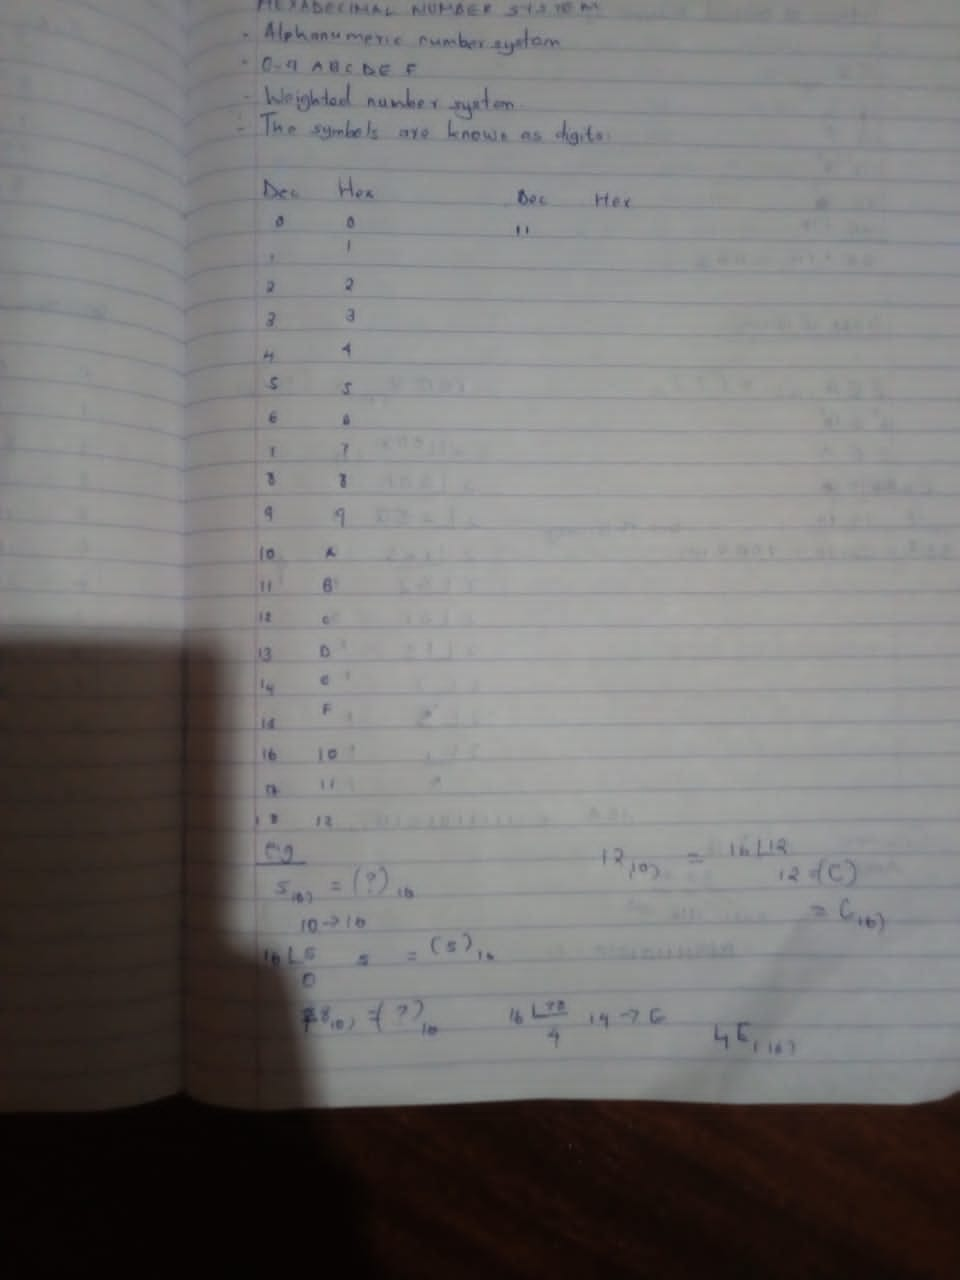 HEXADECIMAL NUMBER SYSTEM
- Alphanumeric number system
- 0-9 A B C D E F
- Weighted number system
- The symbols are known as digits.
Dec Hex Dec Hex
0 0 11
1 1
2 2
3 3
4 4
5 5
6 6
7 7
8 8
9 9
10 A
11 B
12 C
13 D
14 E
15 F
16 10
17 11
18 12
eg
5₍₁₀₎ = (?)₁₆
10 → 16
16 L5 5 = (5)₁₆
0
12₍₁₀₎ = 16 L12
12 = (C)
= C₍₁₆₎
78₍₁₀₎ = (?)₁₆ 16 L78 14 → E
4
4E₍₁₆₎